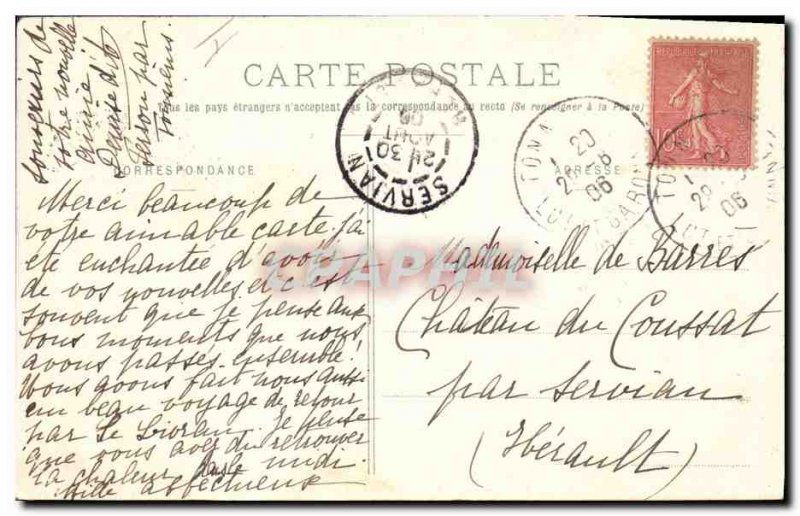 CARTE POSTALE
Tous les pays étrangers n'acceptent pas la correspondance au recto (Se renseigner à la Poste)
CORRESPONDANCE
ADRESSE
RÉPUBLIQUE FRANÇAISE
10
SERVIAN
30
AOUT
06
TONN
20
28 -8
06
LOT-ET-GARONNE
28
06
Merci beaucoup de
votre aimable carte j'ai
été enchantée d'avoir
de vos nouvelles et c'est
souvent que je pense aux
bons moments que nous
avons passés ensemble!
Nous avons fait nous aussi
un beau voyage de retour
par Le Lioran. Je pense
que vous avez dû retrouver
la chaleur dans le midi.
Mille affectueux
souvenirs de
votre nouvelle
amie
Denise
par
Tonneins.
Mademoiselle de Barrès
Château du Coussat
par Servian
(Hérault)
CPAPHIL